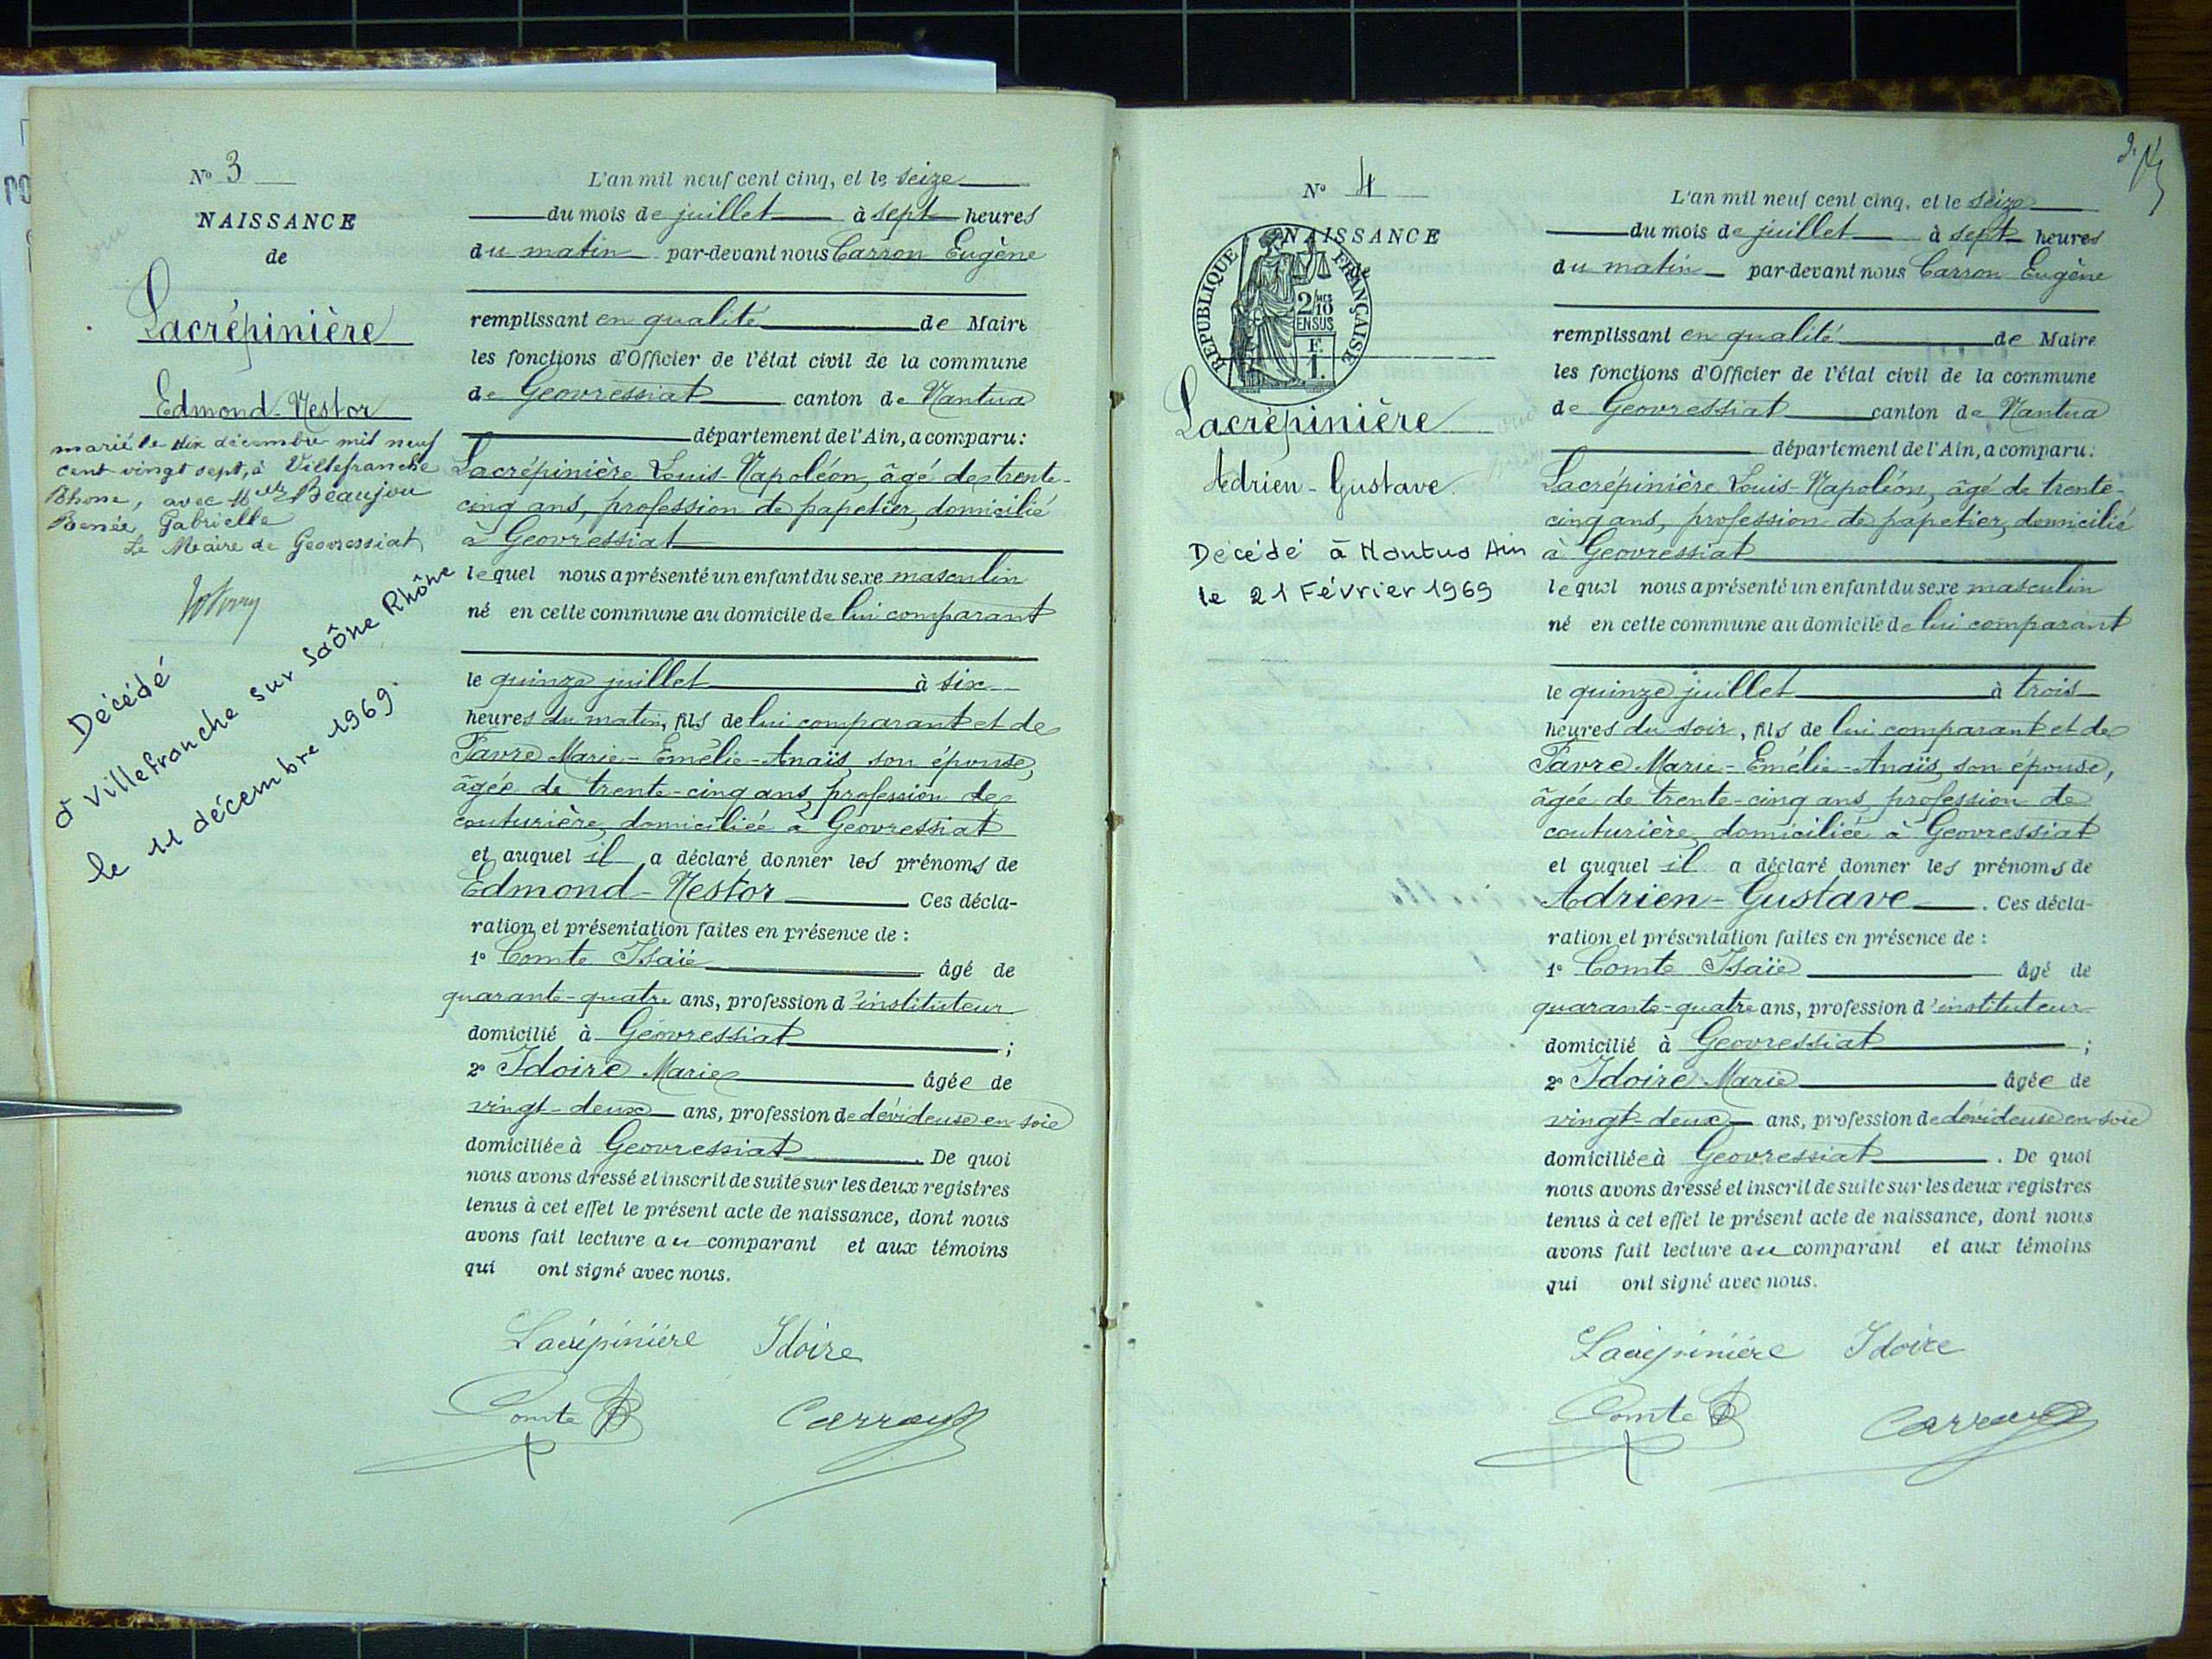 N° 3
NAISSANCE
de
Lacrépinière
Edmond-Nestor
marié le dix décembre mil neuf
cent vingt sept, à Villefranche
Rhône, avec Melle Beaujou
Renée, Gabrielle
Le Maire de Geovressiat
Décédé
à Villefranche sur Saône Rhône
le 11 décembre 1969.
L'an mil neuf cent cinq, et le seize
du mois de juillet à sept heures
du matin par-devant nous Carron Eugène
remplissant en qualité de Maire
les fonctions d'Officier de l'état civil de la commune
de Geovressiat canton de Nantua
département de l'Ain, a comparu:
Lacrépinière Louis-Napoléon, âgé de trente-
cinq ans, profession de papetier, domicilié
à Geovressiat
lequel nous a présenté un enfant du sexe masculin
né en cette commune au domicile de lui comparant
le quinze juillet à six
heures du matin, fils de lui comparant et de
Favre Marie-Emélie-Anaïs, son épouse,
âgée de trente-cinq ans, profession de
couturière, domiciliée à Geovressiat
et auquel il a déclaré donner les prénoms de
Edmond-Nestor Ces décla-
ration et présentation faites en présence de :
1° Comte Isaïe âgé de
quarante-quatre ans, profession d'instituteur
domicilié à Géovressiat ;
2° Idoire Marie âgée de
vingt-deux ans, profession de dévideuse en soie
domiciliée à Geovressiat . De quoi
nous avons dressé et inscrit de suite sur les deux registres
tenus à cet effet le présent acte de naissance, dont nous
avons fait lecture au comparant et aux témoins
qui ont signé avec nous.
Lacrépinière Idoire
Comte Carron
N° 4
NAISSANCE
de
REPUBLIQUE FRANÇAISE
2/10
EN SUS
F.
1.
Lacrépinière
Adrien-Gustave.
Décédé à Nantua Ain
le 21 Février 1969
2.
L'an mil neuf cent cinq, et le seize
du mois de juillet à sept heures
du matin par-devant nous Carron Eugène
remplissant en qualité de Maire
les fonctions d'Officier de l'état civil de la commune
de Geovressiat canton de Nantua
département de l'Ain, a comparu:
Lacrépinière Louis-Napoléon, âgé de trente-
cinq ans, profession de papetier, domicilié
à Geovressiat
lequel nous a présenté un enfant du sexe masculin
né en cette commune au domicile de lui comparant
le quinze juillet à trois
heures du soir, fils de lui comparant et de
Favre Marie-Emélie-Anaïs, son épouse,
âgée de trente-cinq ans, profession de
couturière, domiciliée à Geovressiat
et auquel il a déclaré donner les prénoms de
Adrien-Gustave . Ces décla-
ration et présentation faites en présence de :
1° Comte Isaïe âgé de
quarante-quatre ans, profession d'instituteur
domicilié à Geovressiat ;
2° Idoire Marie âgée de
vingt-deux ans, profession de dévideuse en soie
domiciliée à Geovressiat . De quoi
nous avons dressé et inscrit de suite sur les deux registres
tenus à cet effet le présent acte de naissance, dont nous
avons fait lecture au comparant et aux témoins
qui ont signé avec nous.
Lacrépinière Idoire
Comte Carron